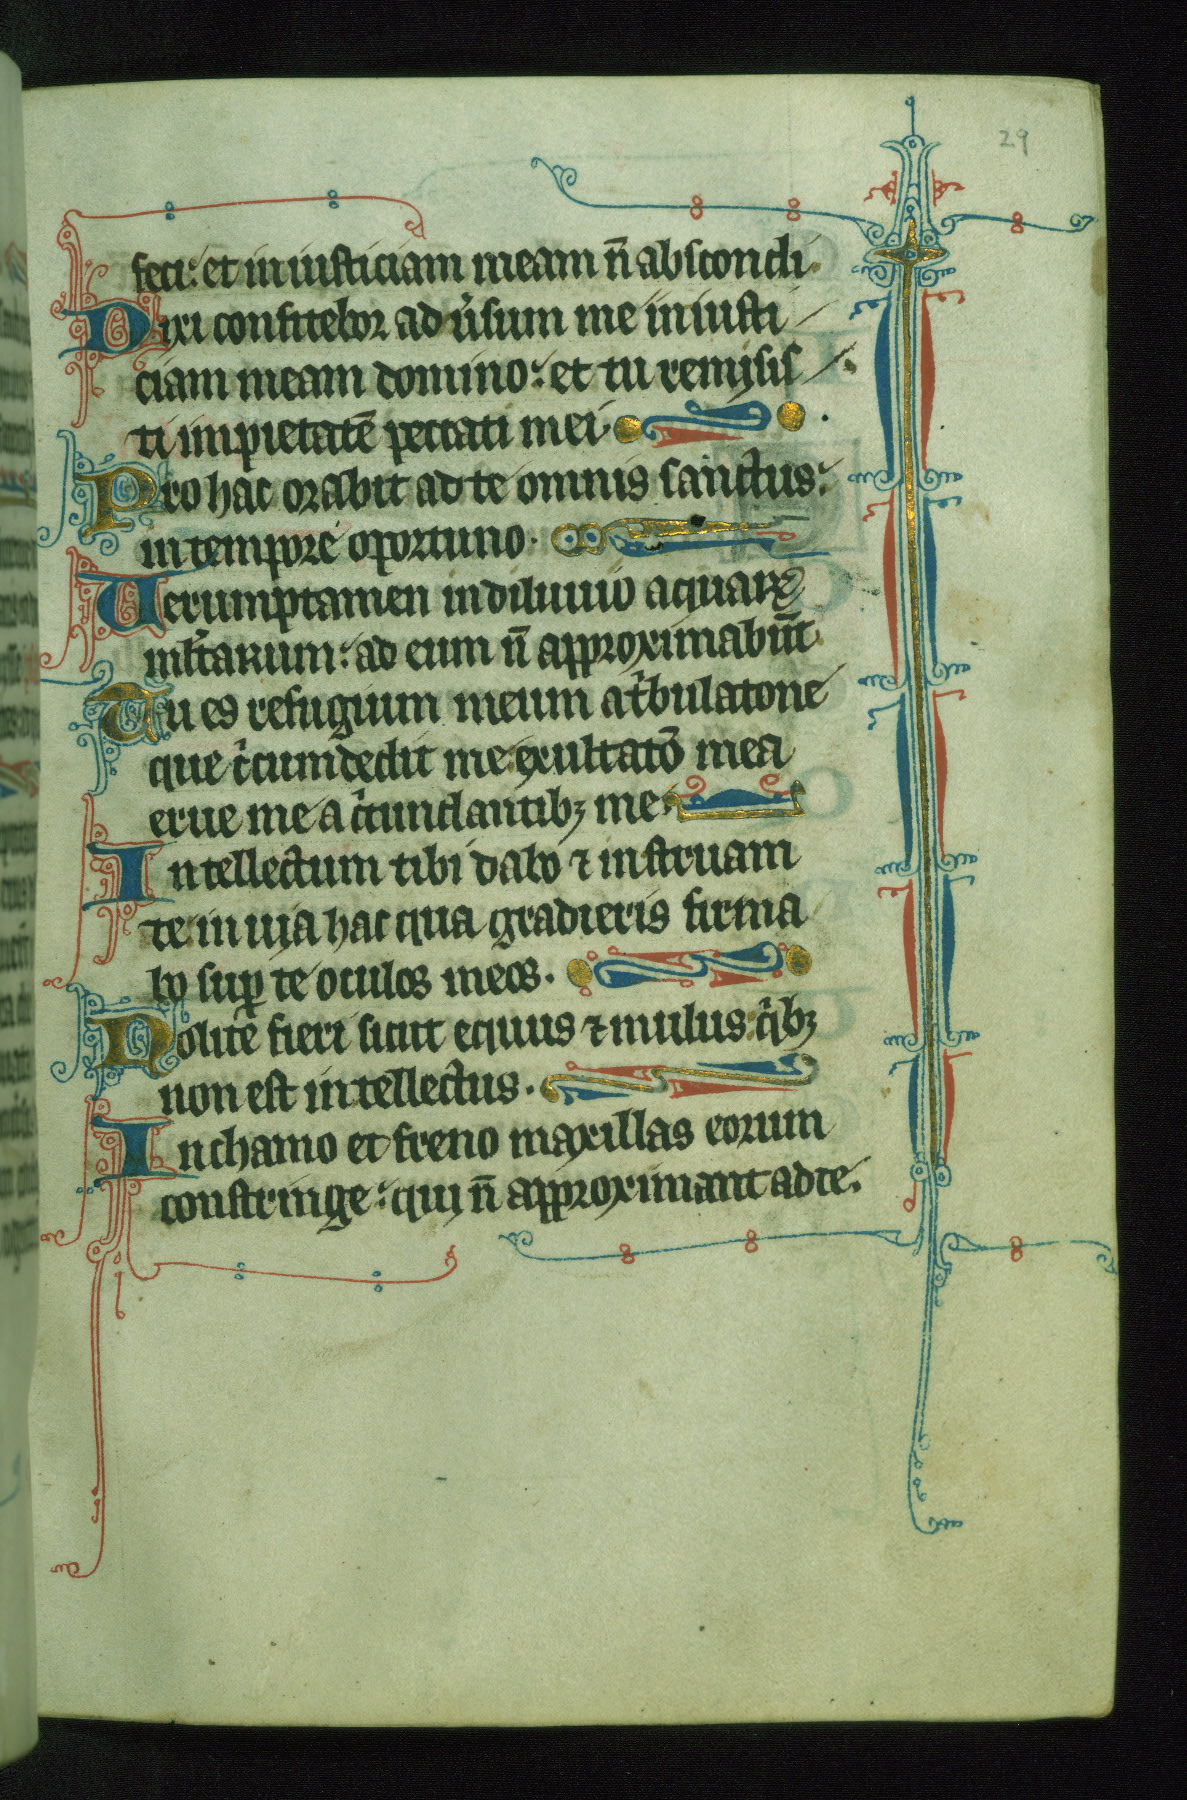 29
feci: et iniusticiam meam n̄ abscondi.
Dixi confitebor aduͥsum me iniusti
ciam meam domino: et tu remisis
ti impietatē peccati mei.
Pro hac orabit ad te omnis sanctus:
in tempore oportuno.
Uerumptamen in diluuio aquaꝝ
ml̓tarum: ad eum n̄ approximabūt.
Tu es refugium meum a tͥbulatone
que cͥcumdedit me exultatō mea
erue me a cͥcundantibꝫ me.
Intellectum tibi dabo ⁊ instruam
te in uia hac qua gradieris firma
bo suꝑ te oculos meos.
Nolite fieri sicut equus ⁊ mulus qͥbꝫ
non est intellectus.
In chamo et freno maxillas eorum
constringe: qui n̄ approximant ad te.